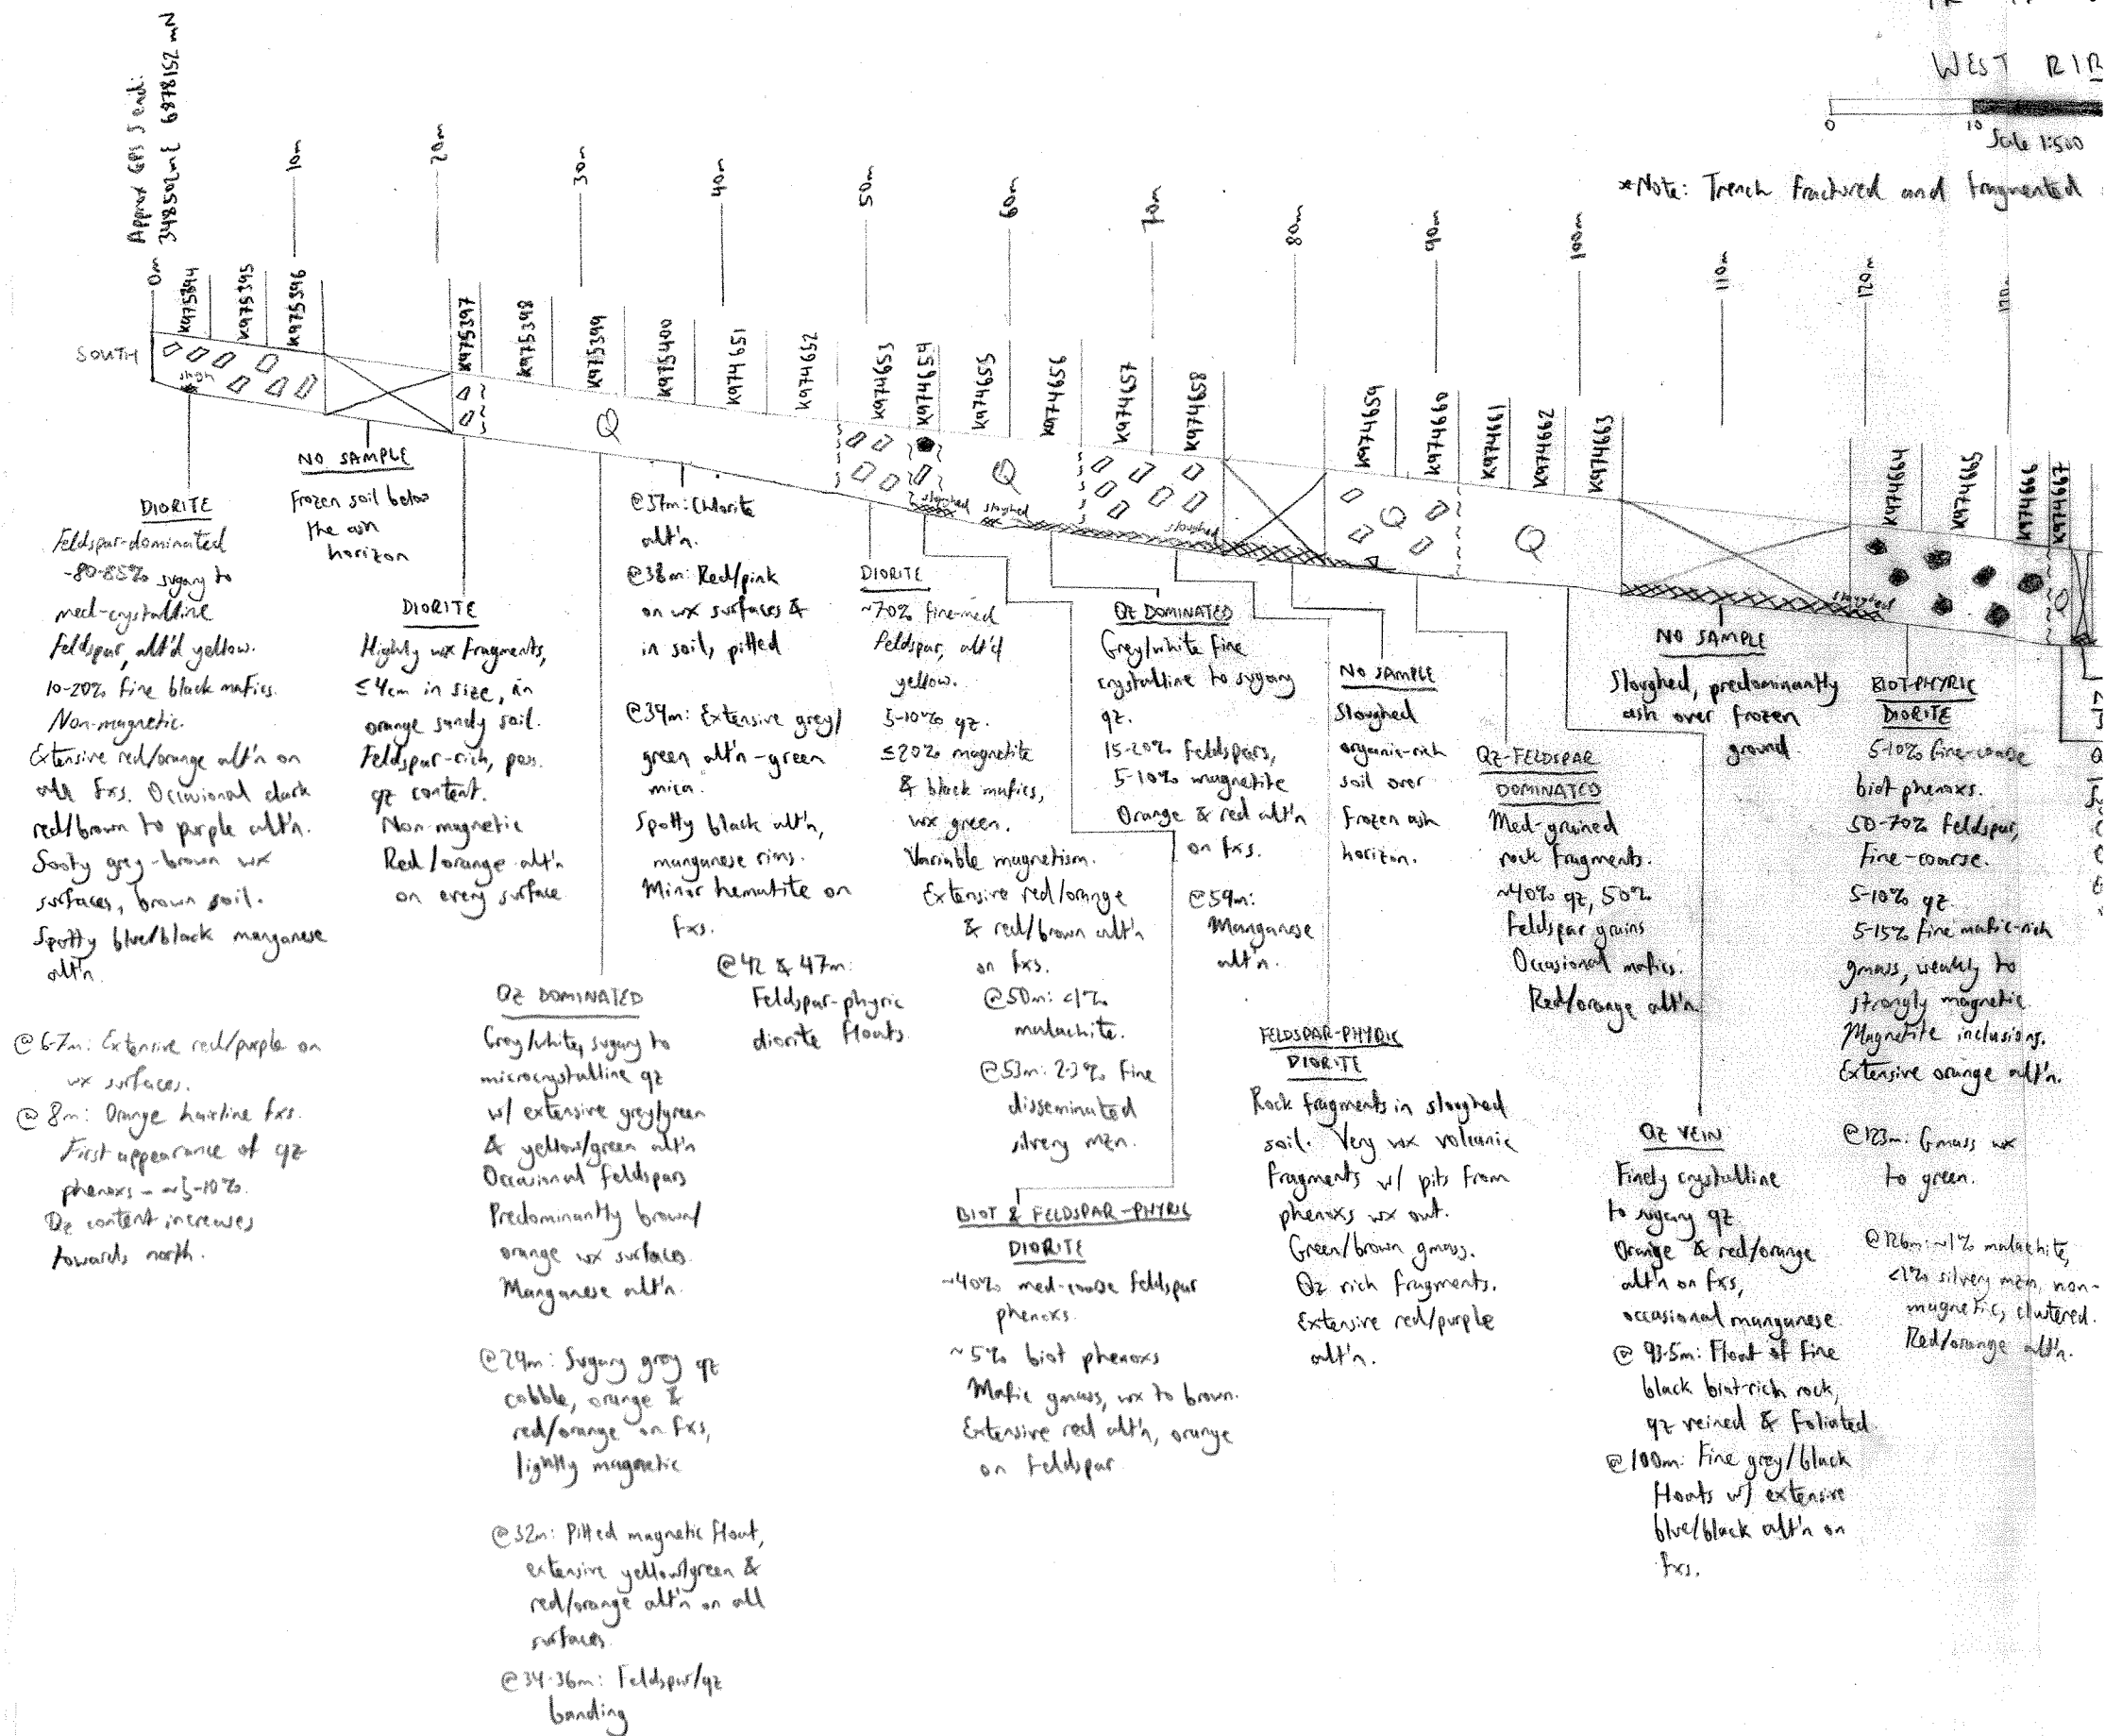 WEST RIB
0 10
Scale 1:500
*Note: Trench fractured and fragmented
Approx GPS S end:
348502mE 6978152mN
0m
10m
20m
30m
40m
50m
60m
70m
80m
90m
100m
110m
120m
130m
K975394
K975395
K975396
K975397
K975398
K975399
K975400
K974651
K974652
K974653
K974654
K974655
K974656
K974657
K974658
K974659
K974660
K974661
K974662
K974663
K974664
K974665
K974666
K974667
SOUTH
Q
Q
Q
Q
Q
sloughed
sloughed
sloughed
sloughed
DIORITE
Feldspar-dominated
~80-85% sugary to
med-crystalline
feldspar, alt'd yellow.
10-20% fine black mafics.
Non-magnetic.
Extensive red/orange alt'n on
all fxs. Occasional dark
red/brown to purple alt'n.
Sooty grey-brown wx
surfaces, brown soil.
Spotty blue/black manganese
alt'n.
@6-7m: Extensive red/purple on
wx surfaces.
@8m: Orange hairline fxs.
First appearance of qz
phenoxs - ~5-10%.
Qz content increases
towards north.
NO SAMPLE
Frozen soil below
the ash
horizon
DIORITE
Highly wx fragments,
≤4cm in size, in
orange sandy soil.
Feldspar-rich, poss.
qz content.
Non-magnetic
Red/orange alt'n
on every surface
QZ DOMINATED
Grey/white, sugary to
microcrystalline qz
w/ extensive grey/green
& yellow/green alt'n
Occasional feldspars
Predominantly brown/
orange wx surfaces.
Manganese alt'n.
@29m: Sugary grey qz
cobble, orange &
red/orange on fxs,
lightly magnetic
@32m: Pitted magnetic float,
extensive yellow/green &
red/orange alt'n on all
surfaces.
@34-36m: Feldspar/qz
banding
@37m: Chlorite
alt'n.
@38m: Red/pink
on wx surfaces &
in soil, pitted
@39m: Extensive grey/
green alt'n - green
mica.
Spotty black alt'n,
manganese rims.
Minor hematite on
fxs.
@42 & 47m:
Feldspar-phyric
diorite floats.
DIORITE
~70% fine-med
feldspar, alt'd
yellow.
5-10% qz.
≤20% magnetite
& black mafics,
wx green.
Variable magnetism.
Extensive red/orange
& red/brown alt'n
on fxs.
@50m: <1%
malachite.
@53m: 2-3% fine
disseminated
silvery mzn.
BIOT & FELDSPAR-PHYRIC
DIORITE
~40% med-coarse feldspar
phenoxs.
~5% biot phenoxs
Mafic gmass, wx to brown.
Extensive red alt'n, orange
on feldspar
QZ DOMINATED
Grey/white fine
crystalline to sugary
qz.
15-20% feldspars,
5-10% magnetite
Orange & red alt'n
on fxs.
@59m:
Manganese
alt'n.
FELDSPAR-PHYRIC
DIORITE
Rock fragments in sloughed
soil. Very wx volcanic
fragments w/ pits from
phenoxs wx out.
Green/brown gmass.
Qz rich fragments.
Extensive red/purple
alt'n.
NO SAMPLE
Sloughed
organic-rich
soil over
frozen ash
horizon.
QZ-FELDSPAR
DOMINATED
Med-grained
rock fragments.
~40% qz, 50%
feldspar grains
Occasional mafics.
Red/orange alt'n
QZ VEIN
Finely crystalline
to sugary qz
Orange & red/orange
alt'n on fxs,
occasional manganese.
@93.5m: Float of fine
black biot-rich rock,
qz veined & foliated.
@100m: Fine grey/black
floats w/ extensive
blue/black alt'n on
fxs.
NO SAMPLE
Sloughed, predominantly
ash over frozen
ground
BIOT-PHYRIC
DIORITE
5-10% fine-coarse
biot phenoxs.
50-70% feldspar,
fine-coarse.
5-10% qz
5-15% fine mafic-rich
gmass, weakly to
strongly magnetic
Magnetite inclusions.
Extensive orange alt'n.
@123m: Gmass wx
to green.
@126m: ~1% malachite,
<1% silvery mzn, non-
magnetic, clustered.
Red/orange alt'n.